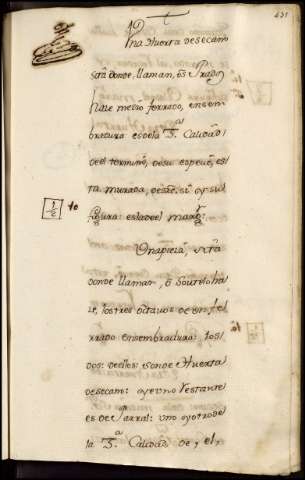 431
Una Huerta de secano
sita donde llaman, os Prados
haze medio ferrado, ensem-
bradura es dela 3.ª Calidad
del termino, de su especie, es-
ta murada, desde, si, y su
figura: es la del marg.n
1/2 10
Una pieza, sita
donde llaman, ô Souto ha
ze, los tres octavos de un fe
rrado ensembradura: los
dos: dellos: son de Huerta
de secano: ay el uno restante
es de Parral: uno y otro de
la 3.ª Calidad de, el,